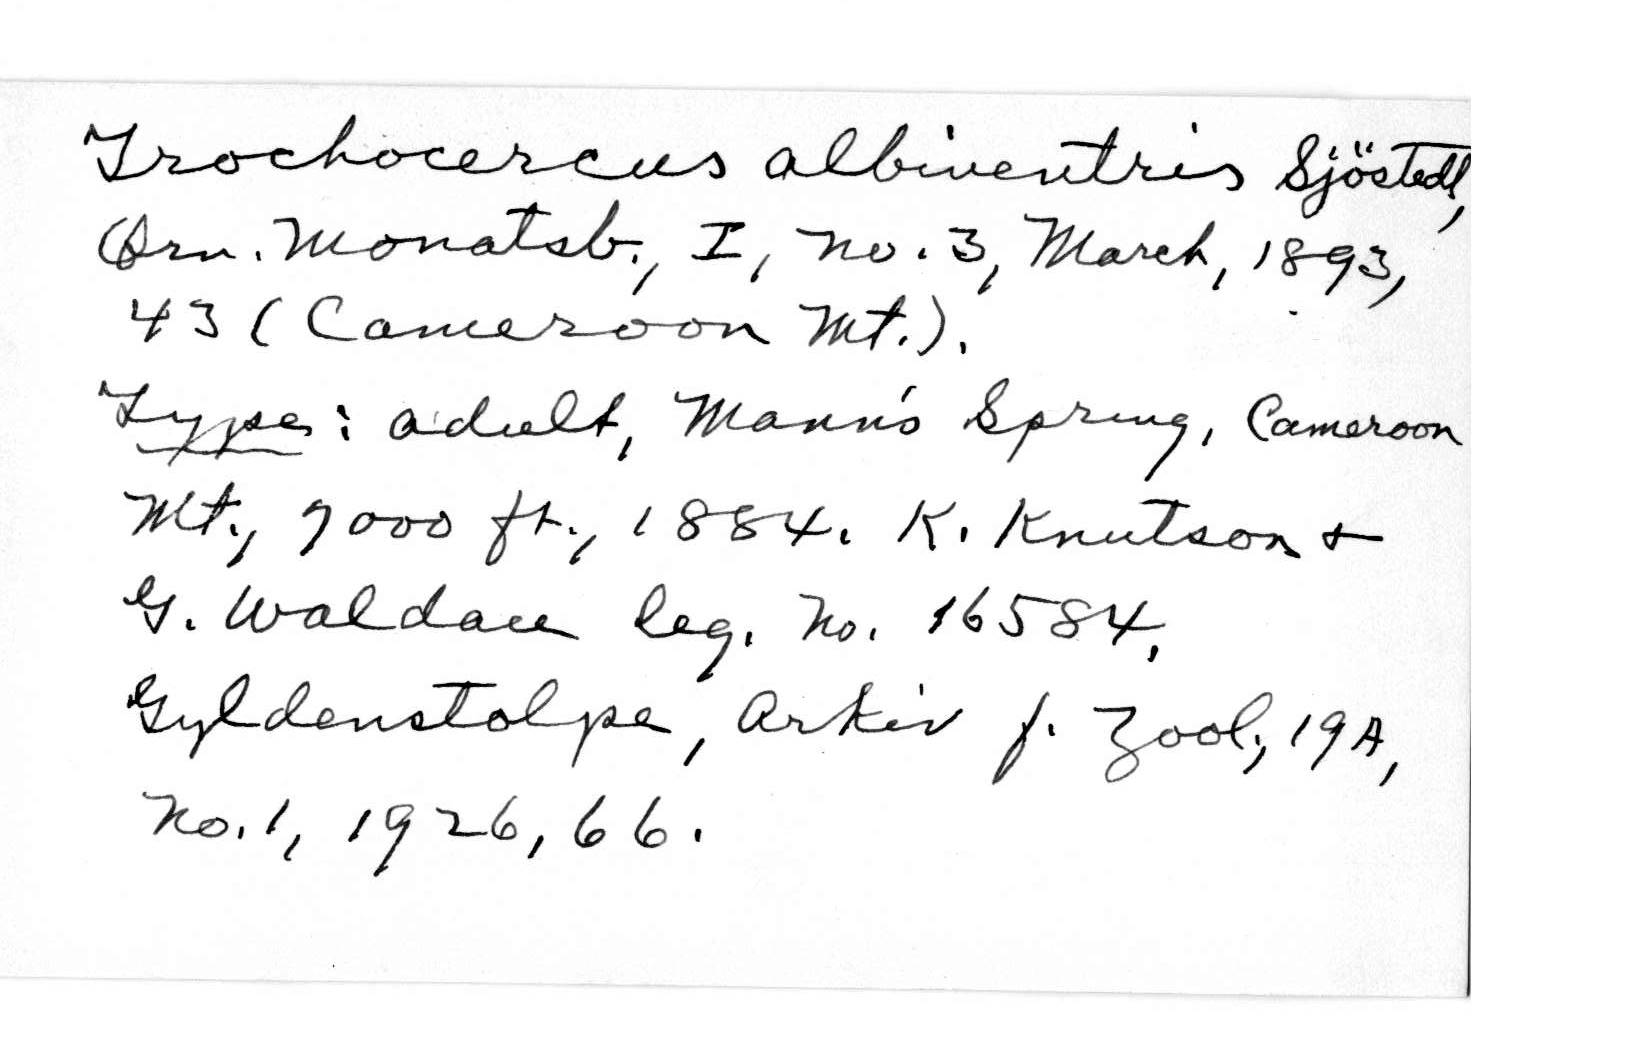 Trochocercus albiventris Sjöstedt,
Orn. Monatsb., I, no. 3, March, 1893,
43 (Cameroon Mt.).
Type: adult, Mann's Spring, Cameroon
Mt., 7000 ft., 1884. K. Knutson +
G. Waldau leg. No. 16584.
Gyldenstolpe, Arkiv f. Zool., 19A,
No. 1, 1926, 66.